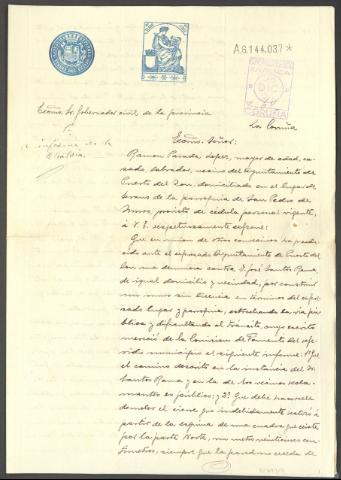 A.6144.037*
DIC
CORUÑA
Excmo. Sr. Gobernador civil de la provincia
La Coruña
A informe de la
Alcaldía.
Excmo. Señor:
Ramon Parada Lopez, mayor de edad, ca-
sado, labrador, vecino del Ayuntamiento de
Puerto del Son, domiciliado en el lugar de
de la parroquia de San Pedro de
provisto de cédula personal vigente,
á V. E. respetuosamente expone:
Que en union de otros convecinos ha pedi-
do ante el expresado Ayuntamiento de Puerto del
Son una denuncia contra D. José Santos Rama,
de igual domicilio y vecindad, por construir
un muro sin licencia en terminos del expre-
sado lugar y parroquia, estrechando la via pú-
blica y dificultando el tránsito, cuyo escrito
mereció de la Comision de Fomento del refe-
rido municipio el siguiente informe: 1º Que
el camino descrito en la instancia del Sr.
Santos Rama y en la de los vecinos recla-
mantes es público; y 2º Que debe
demoler el cierre que indebidamente
partir de la esquina de una cuadra que existe
por la parte Norte, un metro veinticinco cen-
tímetros, siempre que la pared no exceda de